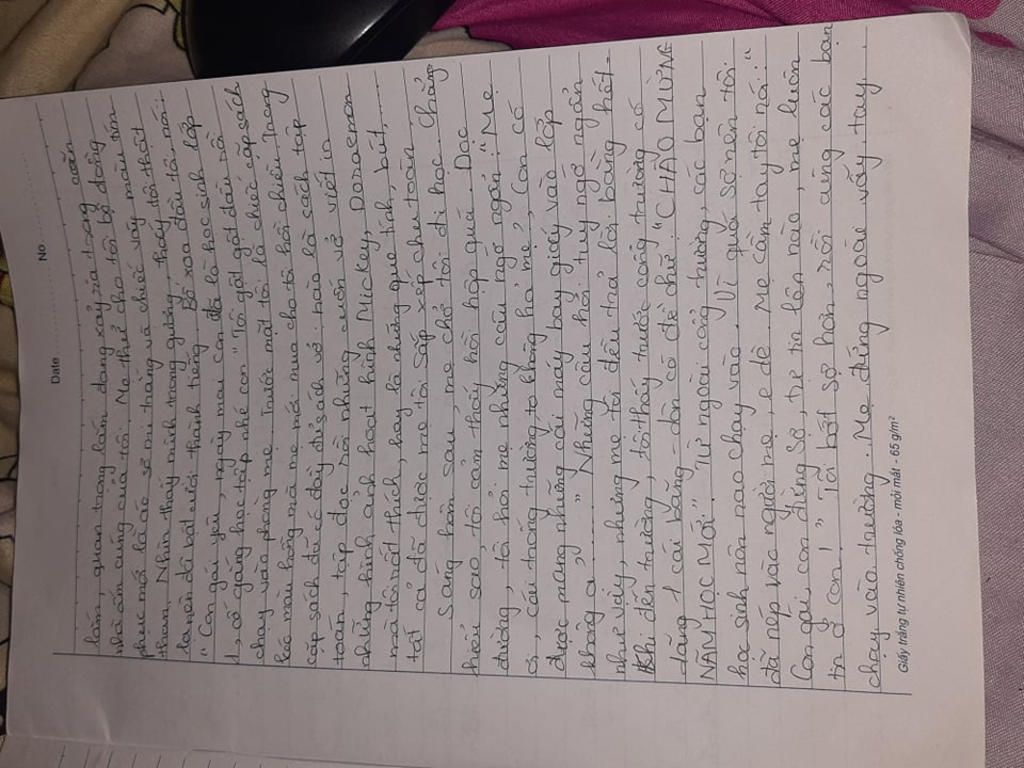 Date .................... No ....................
lắm quan trọng lắm đang xảy ra trong căn
nhà ấm cúng của tôi. Mẹ thử cho tôi bộ đồng
phục mới là áo sơ mi trắng và chiếc váy màu xám
than. Nhìn thấy mình trong gương, thấy tôi thật
lạ nên đã bật cười thành tiếng. Bố xoa đầu tôi, nói:
" Con gái yêu, ngày mai con đã là học sinh lớp
1, cố gắng học tập nhé con". Tôi gật gật đầu rồi
chạy vào phòng mẹ. Trước mắt tôi là chiếc cặp sách
kéo màu hồng mà mẹ mới mua cho tôi hồi chiều. Trong
cặp sách đã có đầy đủ sách vở: nào là sách tập
toán, tập đọc, rồi những cuốn vở viết in
những hình ảnh hoạt hình Mickey, Doraemon
mà tôi rất thích, hay là những que tính, bút,...
tất cả đã được mẹ tôi sắp xếp chu toàn.
Sáng hôm sau, mẹ chở tôi đi học. Chẳng
hiểu sao, tôi cảm thấy hồi hộp quá. Dọc
đường, tôi hỏi mẹ những câu ngơ ngẩn: "Mẹ
ơi, cái trống trường to không hả mẹ, Con có
được mang những cái máy bay giấy vào lớp
không ạ,......" Những câu hỏi tuy ngơ ngẩn
như vậy, nhưng mẹ tôi đều trả lời bằng hết.
Khi đến trường, tôi thấy trước cổng trường có
dăng 1 cái băng - dôn có đề chữ: "CHÀO MỪNG
NĂM HỌC MỚI". Từ ngoài cổng trường, các bạn
học sinh nôn nao chạy vào. Vì quá sợ nên tôi
đã nép vào người mẹ, e dè. Mẹ cầm tay tôi nói: "
Con gái, con đừng sợ, tự tin lên nào, mẹ luôn
tin ở con!" Tôi bớt sợ hơn, rồi cùng các bạn
chạy vào trường. Mẹ đứng ngoài vẫy tay.
Giấy trắng tự nhiên chống lóa - mỏi mắt - 65 g/m²